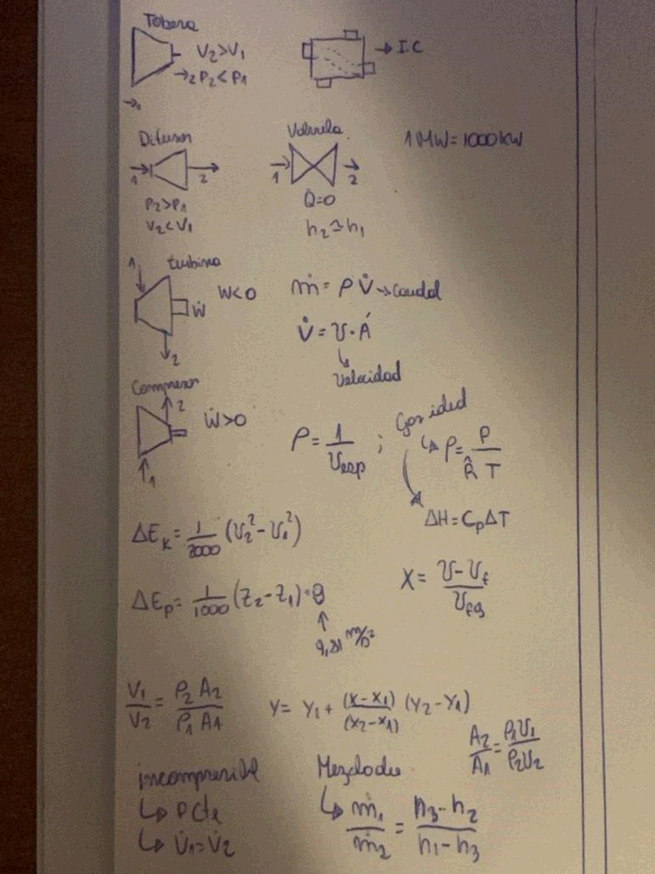 Tobera
V₂>V₁
→₂ P₂<P₁
→₁
→ I.C
Difusor
1 → 2 →
P₂>P₁
V₂<V₁
Válvula
1 → 2 →
Q̇=0
h₂≃h₁
1 MW = 1000 kW
turbina
1
Ẇ
W<0
2
ṁ = ρ V̇ → Caudal
V̇ = v · Á
Velocidad
Compresor
2
Ẇ>0
1
ρ = 1/v_esp ;
Gas ideal
↳ ρ = P/(R̂ T)
ΔH = CpΔT
ΔE_K = 1/2000 (v₂² - v₁²)
ΔE_p = 1/1000 (Z₂ - Z₁) · g
9,81 m/s²
X = (v - v_f)/v_fg
V₁/V₂ = ρ₂ A₂/ρ₁ A₁
Y = Y₁ + (x - x₁)/(x₂ - x₁) (Y₂ - Y₁)
A₂/A₁ = ρ₁v₁/ρ₂v₂
incompresible
↳ ρ cte
↳ V̇₁ = V̇₂
↳ ṁ₁/ṁ₂ = (h₃ - h₂)/(h₁ - h₃)